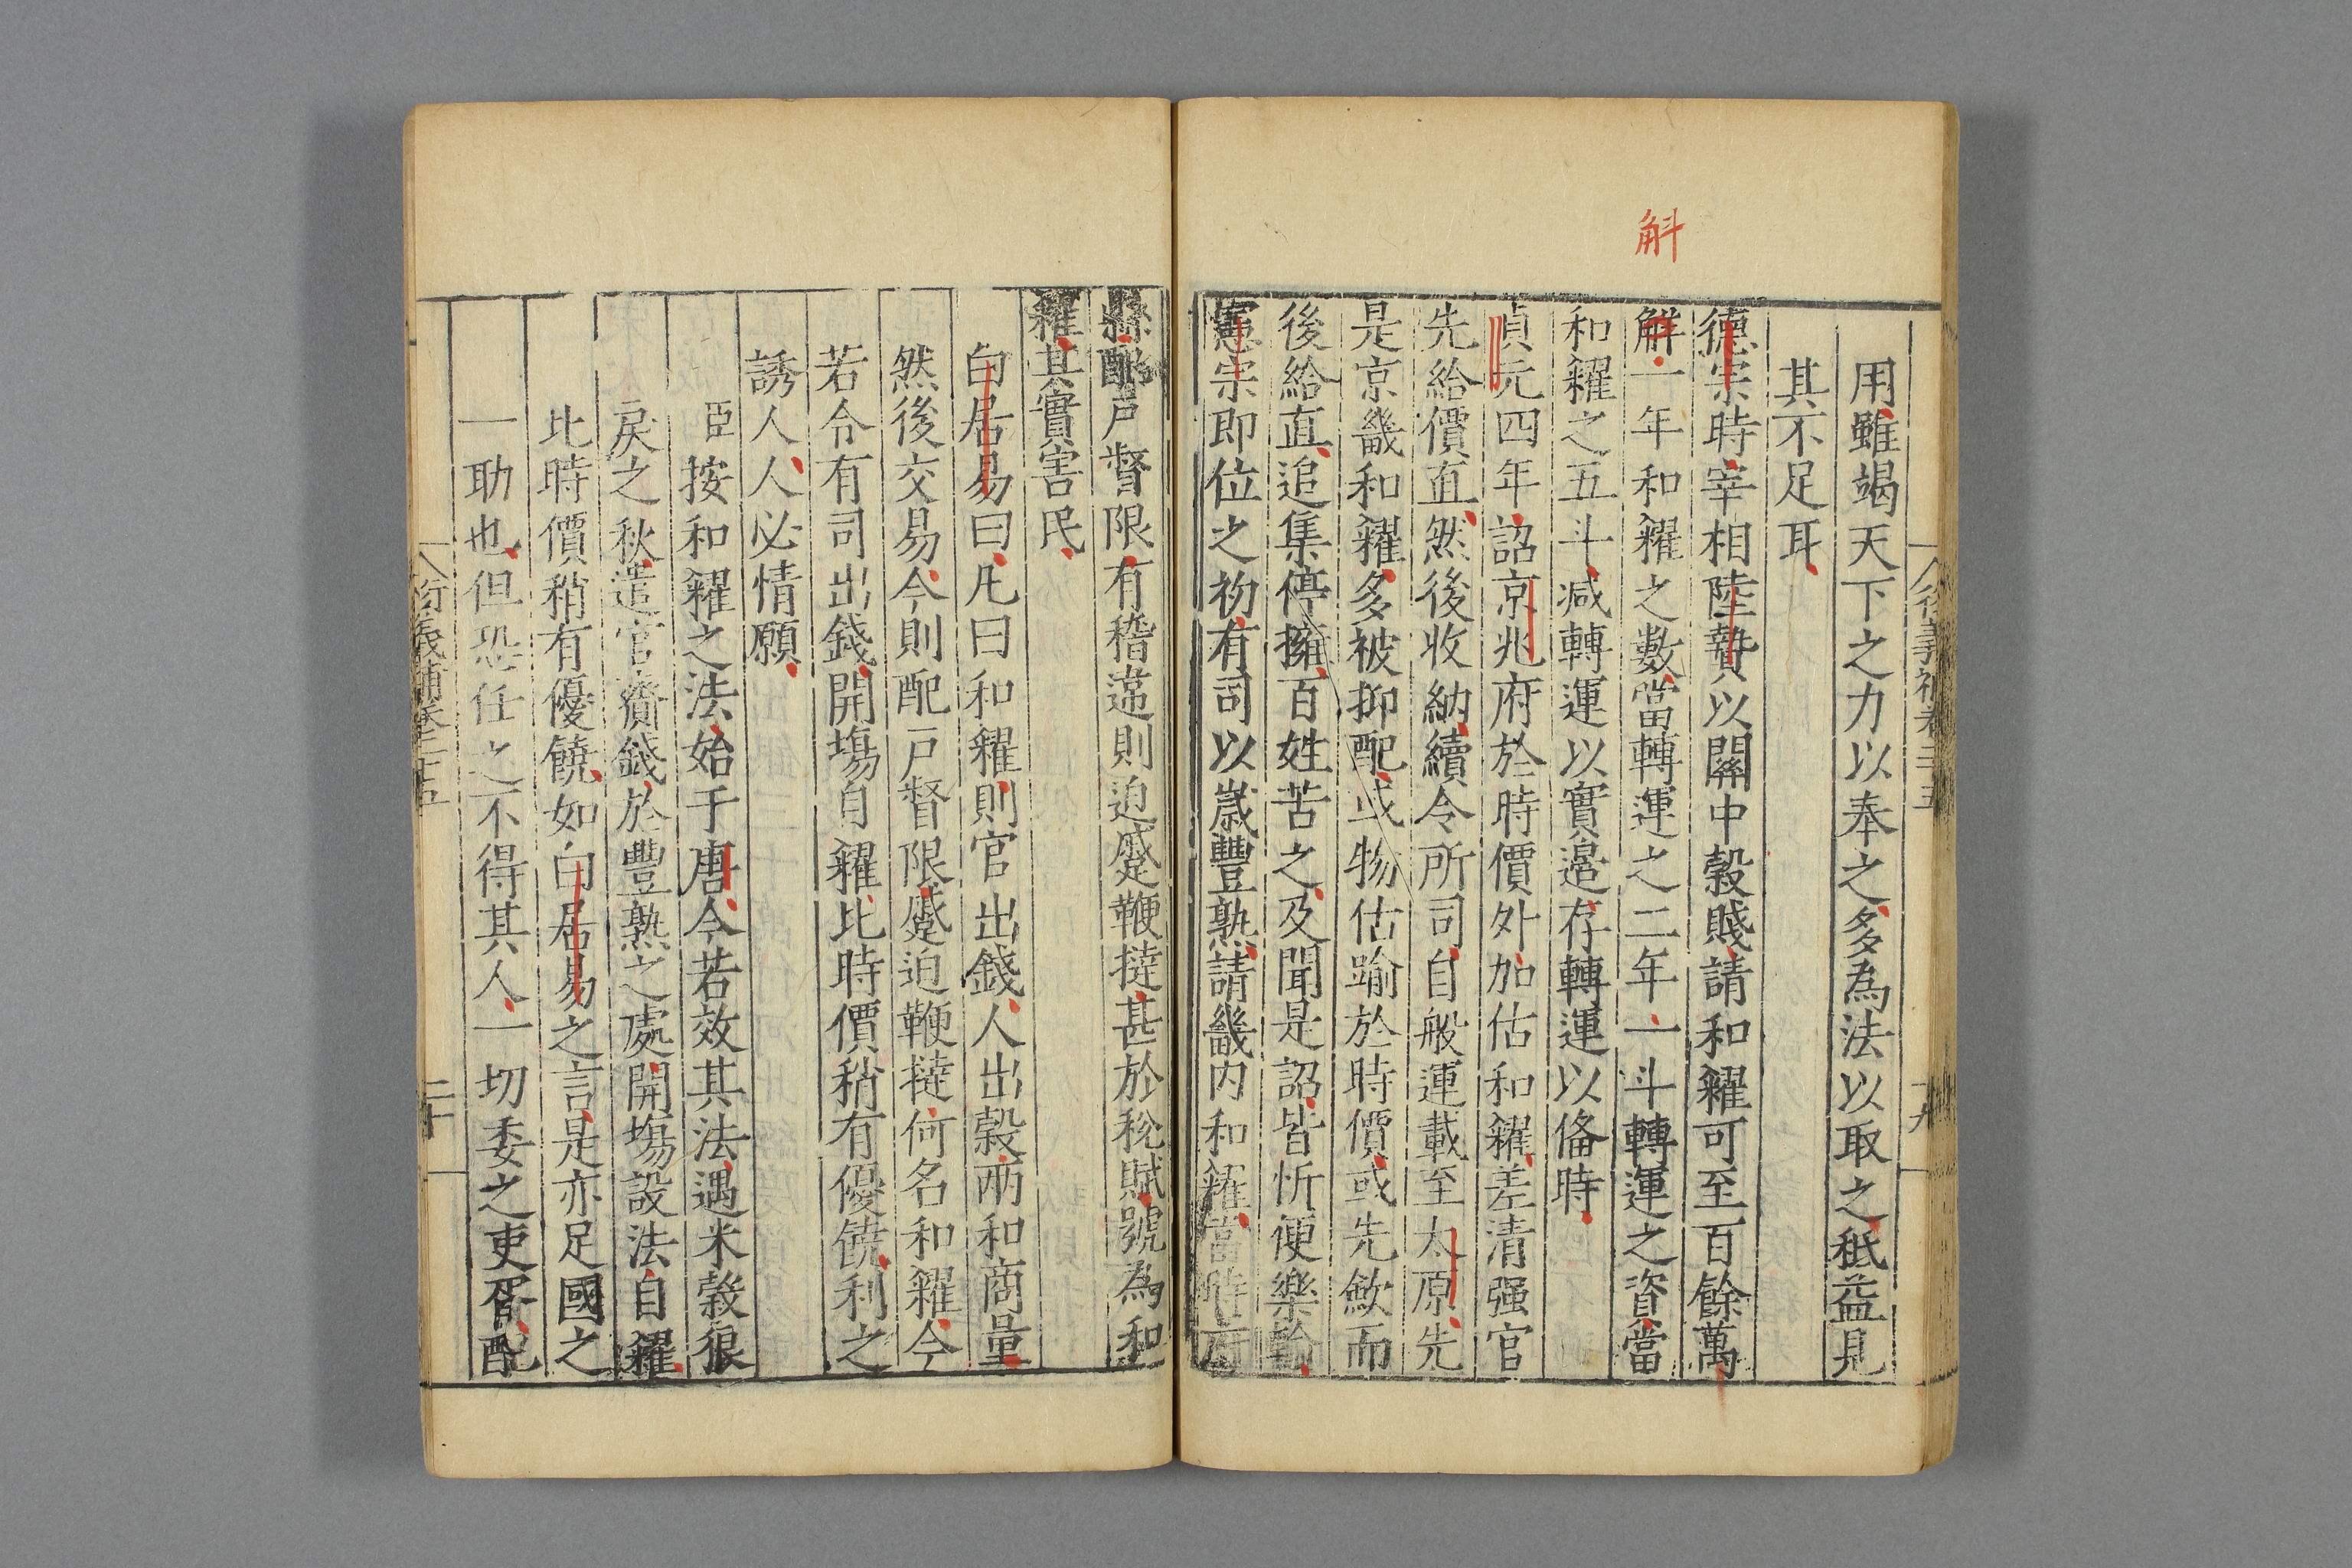 斛
用雖竭天下之力以奉之多為法以取之秖益見
其不足耳
德宗時宰相陸贄以關中穀賤請和糴可至百餘萬
解一年和糴之數當轉運之二年一斗轉運之資當
和糴之五斗减轉運以實邉存轉運以俻時
貞元四年詔京兆府於時價外加估和糴差清强官
先給價直然後收納續令所司自般運載至太原先
是京畿和糴多被抑配或物估踰於時價或先歛而
後給直追集停擁百姓苦之及聞是詔皆忻便樂輸
憲宗即位之初有司以嵗豐熟請畿内和糴當時府
縣配戸督限有稽違則迫蹙鞭撻甚於稅賦號為和
糴其實害民
白居易曰凡曰和糴則官出錢人出穀兩和商量
然後交易今則配戸督限蹙迫鞭撻何名和糴今
若令有司出錢開塲自糴比時價稍有優饒利之
誘人人必情願
臣按和糴之法始于唐今若效其法遇米穀狼
戾之秋遣官齎錢於豐熟之處開塲設法自糴
比時價稍有優饒如白居易之言是亦足國之
一助也但恐任之不得其人一切委之吏胥配
衍義補卷二十五
二十